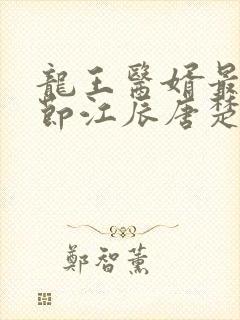 龍王醫婿最
節江辰唐楚
鄭智薰